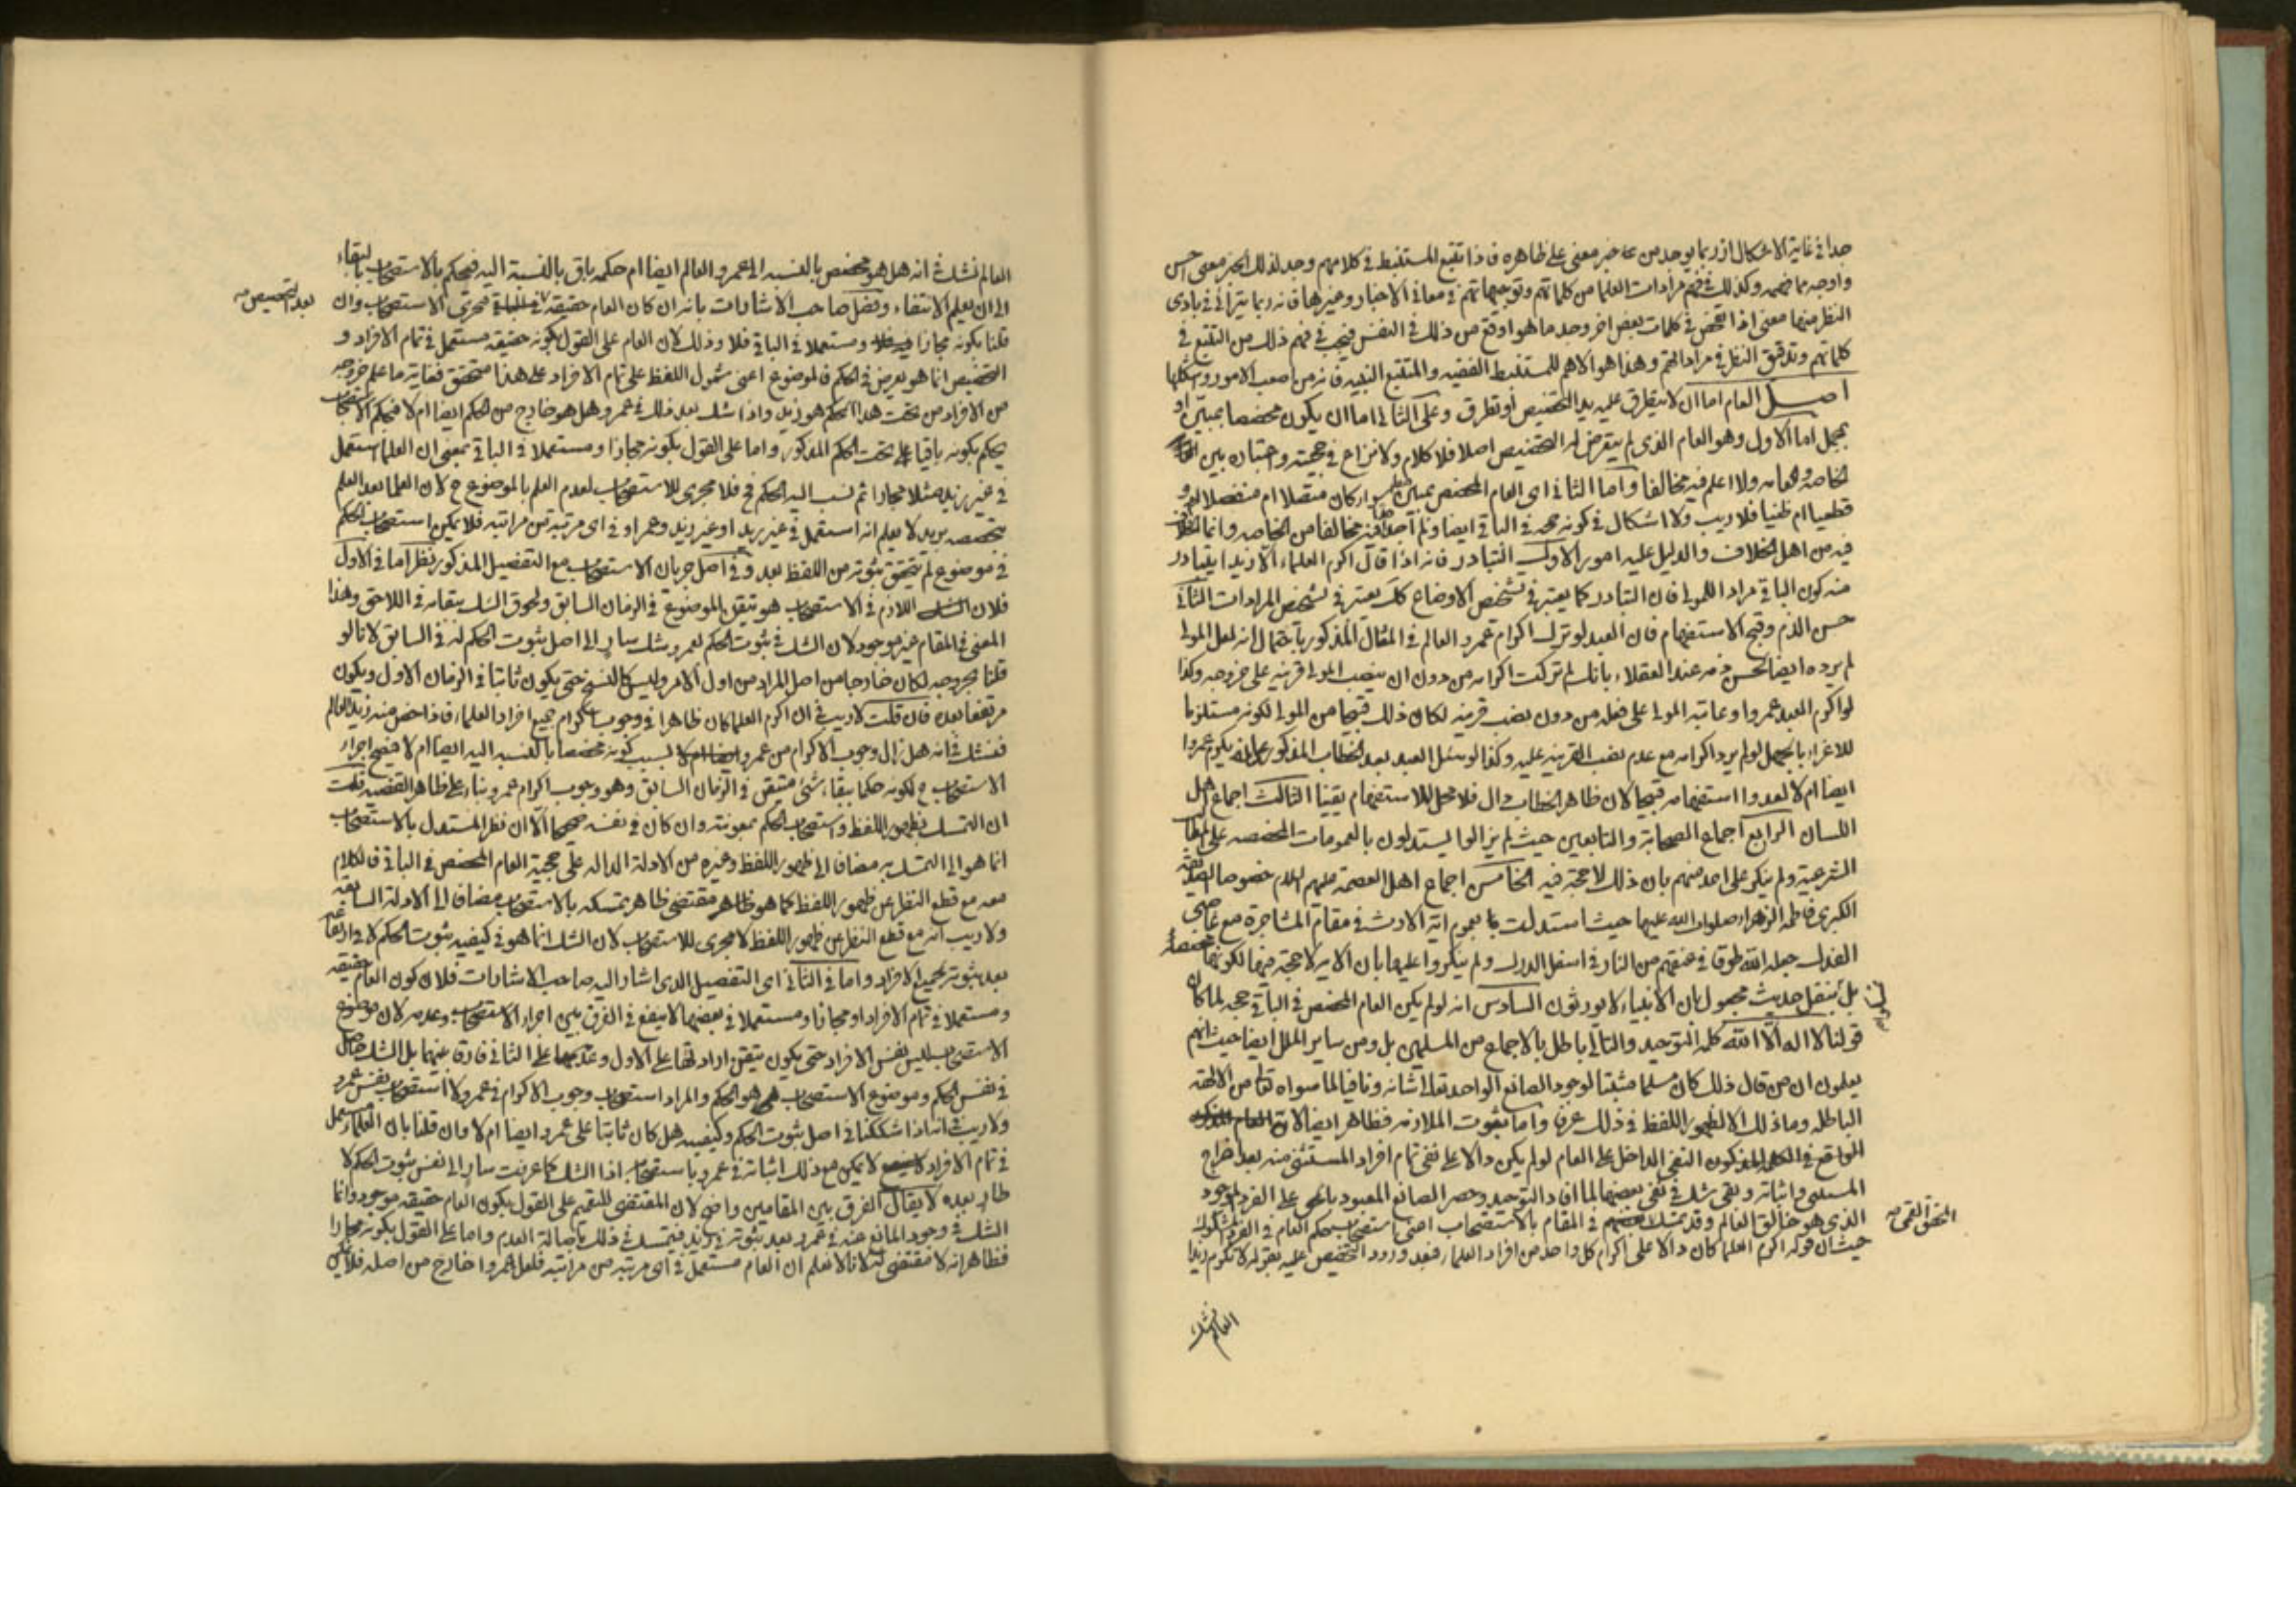 جدا فى غاية الاشكال اذ ربما يوجد من خبر معنى على ظاهره فاذا تتبع المستنبط فى كلامهم وجد لذلك الخبر معنى احسن
واوجه مما فهمه وكذلك فى فهم مرادات العلما من كلماتهم وتوجيهاتهم فى معانى الاخبار وغيرها فانه ربما يترائى فى بادى
النظر منها معنى اذا تفحص فى كلمات بعض اخر وجد ما هو اوقع من ذلك فى النفس فيجب فى فهم ذلك من التتبع فى
كلماتهم وتدقيق النظر فى مراداتهم وهذا هو الاهم للمستنبط الفقيه والمتتبع النبيه فانه من اصعب الامور واشكلها
اصل العام اما ان لا يتطرق عليه يد التخصيص او تطرق وعلى الثانى اما ان يكون مخصصا بمبين او
بمجمل اما الاول وهو العام الذى لم يتعرض له التخصيص اصلا فلا كلام ولا نزاع فى حجيته واعتباره بين
الخاصة والعامه ولا اعلم فيه مخالفا واما الثانى اى العام المخصص بمبين سواء كان متصلا ام منفصلا
قطعيا ام ظنيا فلا ريب ولا اشكال فى كونه حجه فى الباقى ايضا ولم اجد فيه مخالفا من الخاصه وانما الخلاف
فيه من اهل الخلاف والدليل عليه امور الاول التبادر فانه اذا قال اكرم العلماء الا زيدا يتبادر
منه كون الباقى مراد المولى فان التبادر كما يعتبر فى تشخيص الاوضاع كك يعتبر فى تشخيص المرادات الثانى
حسن الذم وقبح الاستفهام فان العبد لو ترك اكرام عمرو العالم فى المثال المذكور باحتمال انه لعل المولى
لم يرده ايضا لحسن ذمه عند العقلاء بانك لم تركت اكرامه من دون ان ينصب المولى قرينه على خروجه وكذا
لو اكرم العبد عمروا وعاتبه المولى على فعله من دون نصب قرينه لكان ذلك قبيحا من المولى لكونه مستلزما
للاغراء بالجهل لو لم يرد اكرامه مع عدم نصب القرينه عليه وكذا لو سئل العبد بعد الخطاب المذكور يكرم عمروا
ايضا ام لا لعدوا استفهامه قبيحا لان ظاهر الخطاب دال فلا محل للاستفهام يقينا الثالث اجماع اهل
اللسان الرابع اجماع الصحابة والتابعين حيث لم يزالوا يستدلون بالعمومات المخصصه على
الشرعية ولم ينكر على احد منهم بان ذلك لا حجة فيه الخامس اجماع اهل العصمة عليهم السلام خصوصا الصديقة
الكبرى فاطمه الزهراء صلوات الله عليها حيث استدلت بعموم اية الارث فى مقام المشاجرة مع غاصبى
الفدك جعله الله طوقا فى عنقهم من النار فى اسفل الدرك ولم ينكروا عليها بان الايه لا حجة فيها لكونها مخصصة
بل بنقل حديث مجعول بان الانبياء لا يورثون السادس انه لو لم يكن العام المخصص فى الباقى حجه لما كان
قولنا لا اله الا الله كلمة التوحيد والتالى باطل بالاجماع من المسلمين بل ومن ساير الملل ايضا حيث انهم
يعلمون ان من قال ذلك كان مسلما مثبتا لوجود الصانع الواحد تعالى شانه ونافيا لما سواه من الالهة
الباطله وما ذلك الا لظهور اللفظ فى ذلك عرفا واما ثبوت الملازمه فظاهر ايضا لان
الواقع فى النفى الداخل على العام لو لم يكن دالا على نفى تمام افراد المستثنى منه بعد اخراج
المستثنى واثباته وبقى شك فى نفى بعضها لما افاد التوحيد وحصر الصانع المعبود على الفرد الموجود
الذى هو خالق العالم وقد تمسك فى المقام بالاستصحاب اعنى استصحاب حكم العام فى الفرد المشكوك
المحقق القمى
حيث ان قوله اكرم العلما كان دالا على اكرام كل واحد من افراد العلما فبعد ورود التخصيص عليه بقوله لا تكرم زيدا
العالم نشك
العالم نشك فى انه هل هو مخصص بالنسبه الى عمرو العالم ايضا ام حكمه باق بالنسبة اليه فيحكم بالاستصحاب لبقاء
الى ان يعلم الانتفاء وفصل صاحب الاشارات بانه ان كان العام حقيقه فى الباقى فجرى الاستصحاب وان
بعد التخصيص
قلنا بكونه مجازا ومستعملا فى الباقى فلا وذلك لان العام على القول بكونه حقيقه مستعمل فى تمام الافراد و
التخصيص انما هو يعرض فى الحكم فالموضوع اعنى شمول اللفظ على تمام الافراد على هذا متحقق فغاية ما علم خروجه
من الافراد من تحت هذا الحكم هو زيد واذا شك بعد ذلك فى عمرو هل هو خارج من الحكم ايضا ام لا فبحكم الاستصحاب
يحكم بكونه باقيا على تحت الحكم المذكور واما على القول بكونه مجازا ومستعملا فى الباقى بمعنى ان العلما استعمل
فى غير زيد مثلا مجازا ثم نسب اليه الحكم فلا مجرى للاستصحاب لعدم العلم بالموضوع ح لان العلما بعد العلم
بتخصصه بزيد لا يعلم انه استعمل فى غير زيد او غير زيد وعمرو او فى اى مرتبة من مراتبه فلا يمكن استصحاب الحكم
فى موضوع لم يتحقق ثبوته من اللفظ بعد وفى اصل جريان الاستصحاب مع التفصيل المذكور نظر اما فى الاول
فلان الشك اللازم فى الاستصحاب هو تيقن الموضوع فى الزمان السابق ولحوق الشك ببقائه فى اللاحق وهذا
المعنى فى المقام غير موجود لان الشك فى ثبوت الحكم لعمرو شك سار الى اصل ثبوت الحكم له فى السابق لانا لو
قلنا بخروجه لكان خارجا من اصل المراد من اول الامر وليس كالنسخ حتى يكون ثابتا فى الزمان الاول ويكون
مرتفعا بعده فان قلت لا ريب فى ان اكرم العلما كان ظاهرا فى وجوب اكرام جميع افراد العلماء فاذا خص منه زيد العالم
فنشك فى انه هل زال وجوب الاكرام من عمرو بسبب كونه مخصصا بالنسبه اليه ايضا ام لا فيصح اجراء
الاستصحاب ح لكونه حكما ببقاء شئ متيقن فى الزمان السابق وهو وجوب اكرام عمرو بناء على ظاهر القضيه قلت
ان التمسك بظهور اللفظ واستصحاب الحكم بمعونته وان كان فى نفسه صحيحا الا ان نظر المستدل بالاستصحاب
انما هو الى التمسك به مضافا الى ظهور اللفظ وغيره من الادلة الداله على حجية العام المخصص فى الباقى فالكلام
معه مع قطع النظر عن ظهور اللفظ كما هو مقتضى ظاهر تمسكه بالاستصحاب مضافا الى الادلة السابقه
ولا ريب انه مع قطع النظر عن ظهور اللفظ لا مجرى للاستصحاب لان الشك انما هو فى كيفيه ثبوت الحكم لا فى ارتفاعه
بعد ثبوته لجميع الافراد واما فى الثانى اى التفصيل الذى اشار اليه صاحب الاشارات فلان كون العام حقيقه
ومستعملا فى تمام الافراد او مجازا ومستعملا فى بعضها لا ينفع فى الفرق بين اجراء الاستصحاب وعدمه لان موضوع
الاستصحاب ليس نفس الافراد حتى يكون تيقن ارادتها على الاول وعدمها على الثانى فارقا بينهما بل الشك حاصل
فى نفس الحكم وموضوع الاستصحاب هو الحكم والمراد استصحاب وجوب الاكرام فى عمرو لا استصحاب نفس عمرو
ولا ريب فى انه اذا شككنا فى اصل ثبوت الحكم وكيفيته هل كان ثابتا على عمرو ايضا ام لا وان قلنا بان العلماء مستعمل
فى تمام الافراد لا يمكن مع ذلك اثباته فى عمرو باستصحاب اذا الشك كما عرفت سار الى نفس ثبوت الحكم لا
طار بعده لا يقال الفرق بين المقامين واضح لان المقتضى للتعميم على القول بكون العام حقيقه موجود وانما
الشك فى وجود المانع عنه فى عمرو بعد ثبوته فى زيد فيتمسك فى ذلك باصالة العدم واما على القول بكونه مجازا
فظاهر انه لا مقتضى لانا لا نعلم ان العام مستعمل فى اى مرتبه من مراتبه فلعل عمروا خارج من اصله فلا يمكن